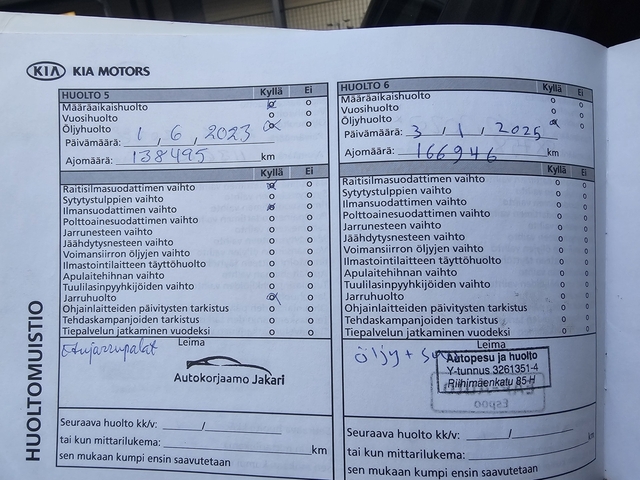 KIA KIA MOTORS
HUOLTO 5 Kyllä Ei
Määräaikaishuolto
Vuosihuolto
Öljyhuolto
Päivämäärä: 1, 6, 2023
Ajomäärä: 138495 km
Kyllä Ei
Raitisilmasuodattimen vaihto
Sytytystulppien vaihto
Ilmansuodattimen vaihto
Polttoainesuodattimen vaihto
Jarrunesteen vaihto
Jäähdytysnesteen vaihto
Voimansiirron öljyjen vaihto
Ilmastointilaitteen täyttöhuolto
Apulaitehihnan vaihto
Tuulilasinpyyhkijöiden vaihto
Jarruhuolto
Ohjainlaitteiden päivitysten tarkistus
Tehdaskampanjoiden tarkistus
Tiepalvelun jatkaminen vuodeksi
Leima
Etujarrupalat
Autokorjaamo Jakari
Seuraava huolto kk/v: /
tai kun mittarilukema: km
sen mukaan kumpi ensin saavutetaan
HUOLTOMUISTIO
HUOLTO 6 Kyllä Ei
Määräaikaishuolto
Vuosihuolto
Öljyhuolto
Päivämäärä: 3, 1, 2025
Ajomäärä: 166946 km
Kyllä Ei
Raitisilmasuodattimen vaihto
Sytytystulppien vaihto
Ilmansuodattimen vaihto
Polttoainesuodattimen vaihto
Jarrunesteen vaihto
Jäähdytysnesteen vaihto
Voimansiirron öljyjen vaihto
Ilmastointilaitteen täyttöhuolto
Apulaitehihnan vaihto
Tuulilasinpyyhkijöiden vaihto
Jarruhuolto
Ohjainlaitteiden päivitysten tarkistus
Tehdaskampanjoiden tarkistus
Tiepalvelun jatkaminen vuodeksi
Leima
öljy +
Autopesu ja huolto
Y-tunnus 3261351-4
Riihimäenkatu 85 H
Espoo
Seuraava huolto kk/v: /
tai kun mittarilukema: km
sen mukaan kumpi ensin saavutetaan